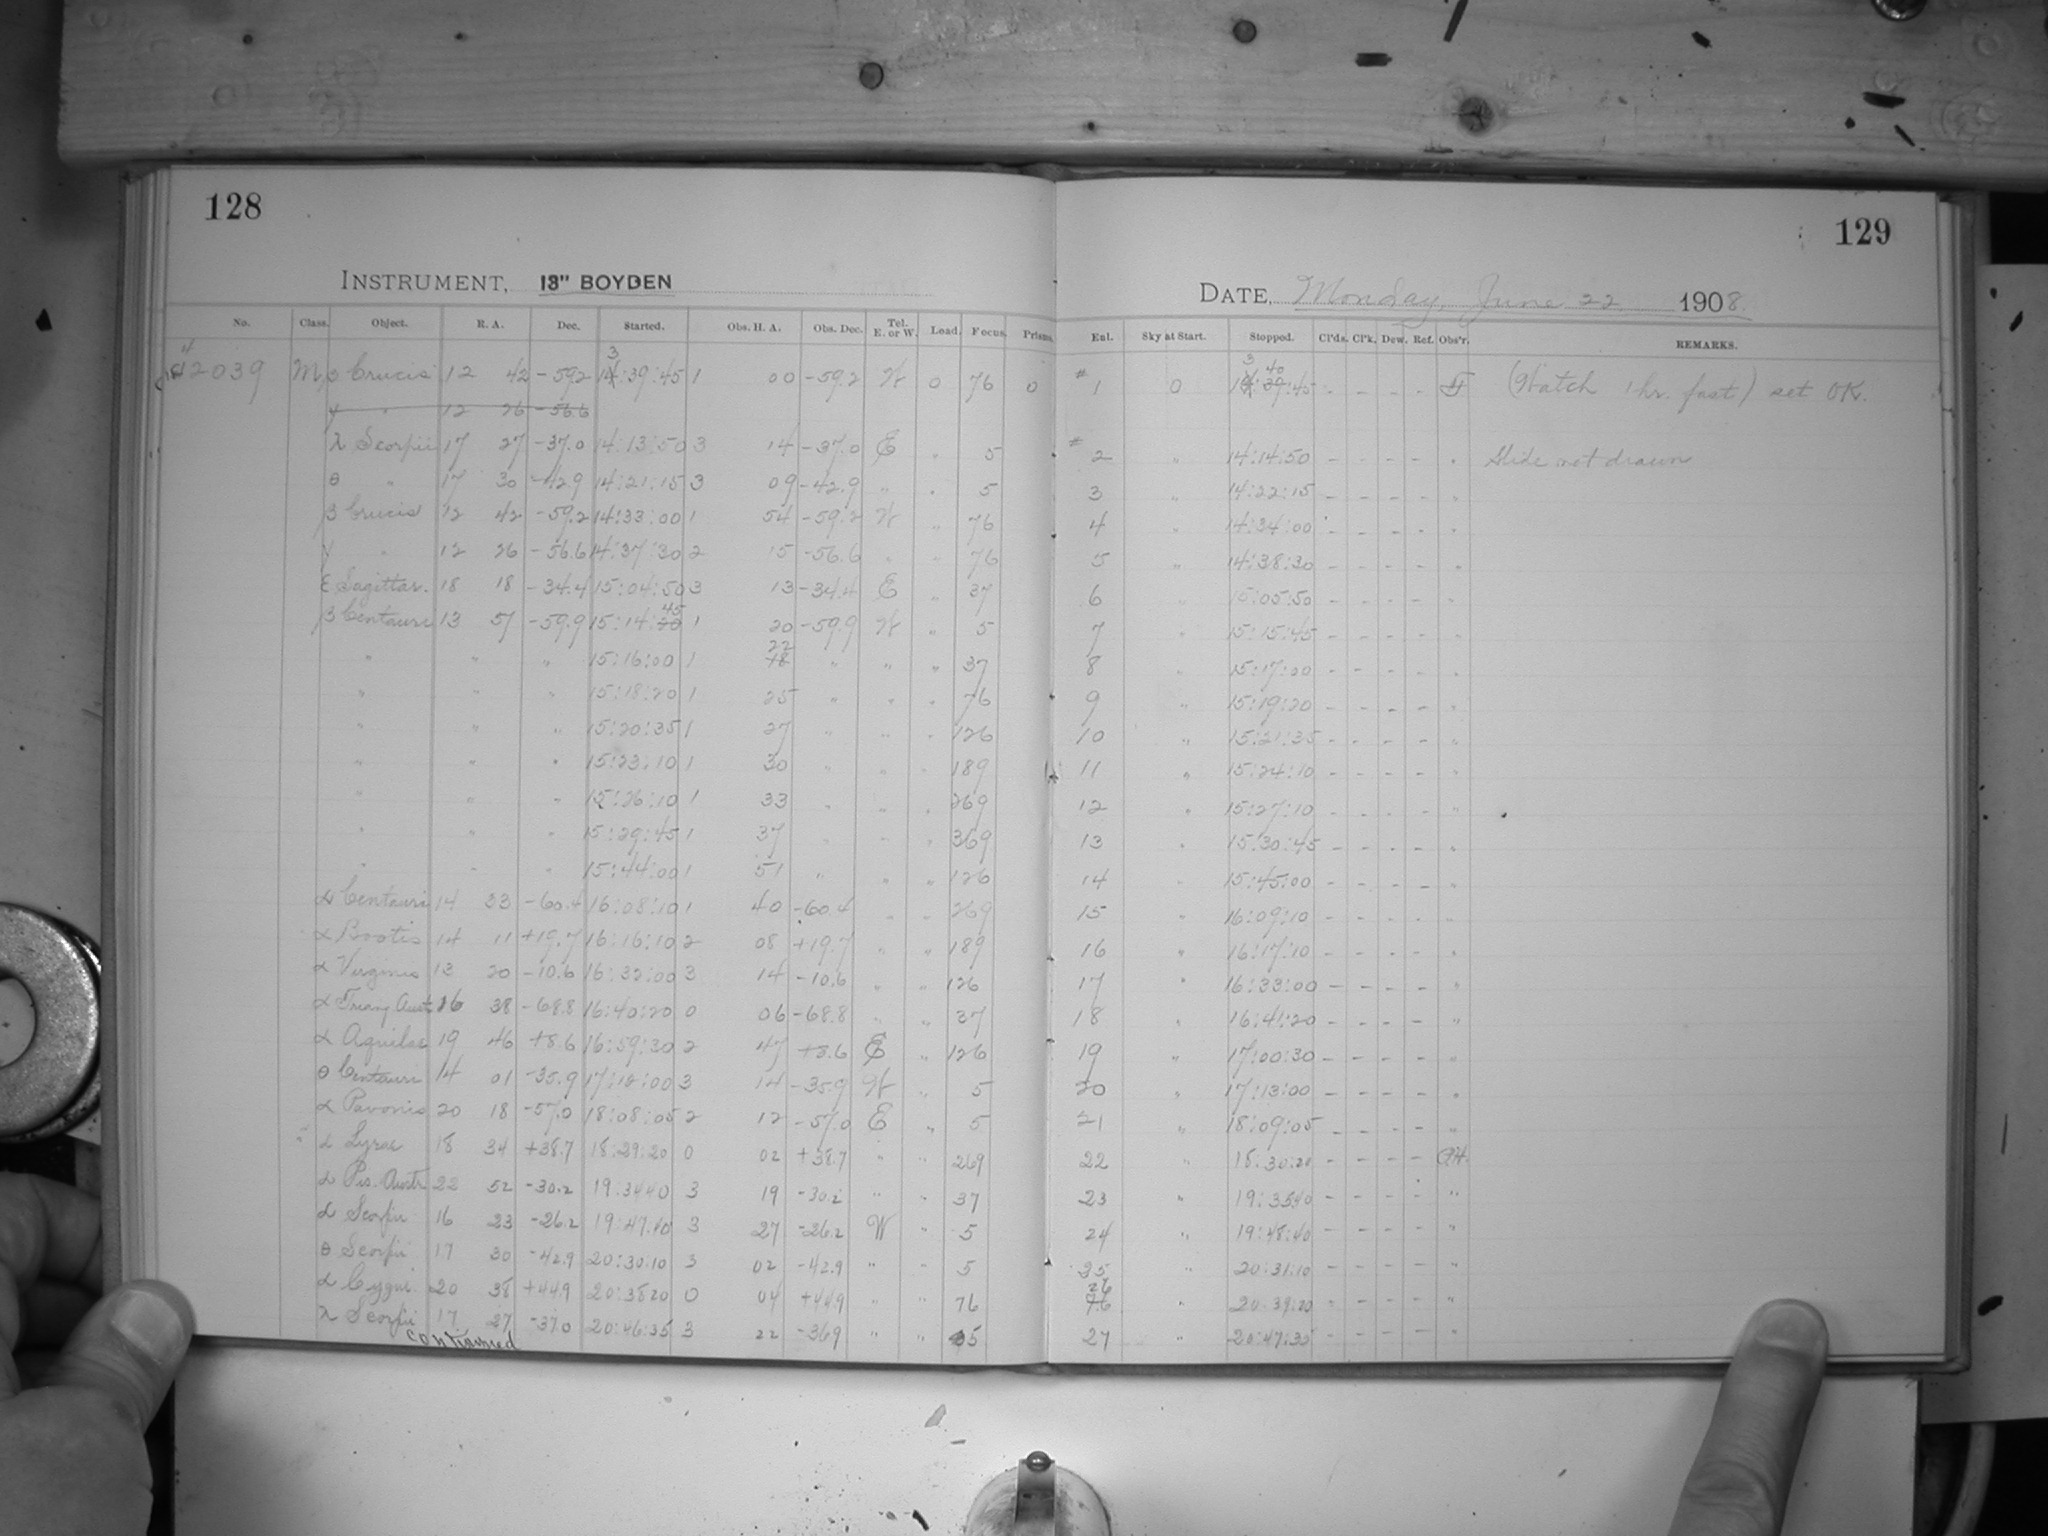 128
129
INSTRUMENT, 13" BOYDEN
DATE, Monday, June 22 1908.
No. Class. Object. R. A. Dec. Started. Obs. H. A. Obs. Dec. Tel. E. or W. Lead. Focus. Prisms. Exl. Sky at Start. Stopped. Cl'ds. Cl'k. Dew. Ref. Obs'r. REMARKS.
12039 M β Crucis 12 42 -59.2 13:39:45 1 00 -59.2 W 0 76 0 1 0 13:40:45 - - - - (Watch 1 hr. fast) set OK.
γ " 12 26 -56.6
λ Scorpii 17 27 -37.0 14:13:50 3 14 -37.0 E " 5 2 " 14:14:50 - - - - " Slide not drawn
θ " 17 30 -42.9 14:21:15 3 09 -42.9 " " 5 3 " 14:22:15 - - - - "
β Crucis 12 42 -59.2 14:33:00 1 54 -59.2 W " 76 4 " 14:34:00 - - - - "
γ " 12 26 -56.6 14:37:30 2 15 -56.6 " " 76 5 " 14:38:30 - - - - "
ε Sagittar. 18 18 -34.4 15:04:50 3 13 -34.4 E " 37 6 " 15:05:50 - - - - "
β Centauri 13 57 -59.9 15:14:45 1 20 -59.9 W " 5 7 " 15:15:45 - - - - "
" " " 15:16:00 1 22 " " " 37 8 " 15:17:00 - - - - "
" " " 15:18:20 1 25 " " " 76 9 " 15:19:20 - - - - "
" " " 15:20:35 1 27 " " " 126 10 " 15:21:35 - - - - "
" " " 15:23:10 1 30 " " " 189 11 " 15:24:10 - - - - "
" " " 15:26:10 1 33 " " " 269 12 " 15:27:10 - - - - "
" " " 15:29:45 1 37 " " " 369 13 " 15:30:45 - - - - "
" " " 15:44:00 1 51 " " " 126 14 " 15:45:00 - - - - "
α Centauri 14 33 -60.4 16:08:10 1 40 -60.4 " " 269 15 " 16:09:10 - - - - "
α Bootis 14 11 +19.7 16:16:10 2 08 +19.7 " " 189 16 " 16:17:10 - - - - "
α Virginis 13 20 -10.6 16:32:00 3 14 -10.6 " " 126 17 " 16:33:00 - - - - "
α Triang Aust 16 38 -68.8 16:40:20 0 06 -68.8 " " 37 18 " 16:41:20 - - - - "
α Aquilae 19 46 +8.6 16:59:30 2 47 +8.6 E " 126 19 " 17:00:30 - - - - "
θ Centauri 14 01 -35.9 17:12:00 3 14 -35.9 W " 5 20 " 17:13:00 - - - - "
α Pavonis 20 18 -57.0 18:08:05 2 12 -57.0 E " 5 21 " 18:09:05 - - - - "
α Lyrae 18 34 +38.7 18:29:20 0 02 +38.7 " " 269 22 " 18:30:20 - - - -
α Pis. Austr 22 52 -30.2 19:34:40 3 19 -30.2 " " 37 23 " 19:35:40 - - - - "
α Scorpii 16 23 -26.2 19:47:40 3 27 -26.2 W " 5 24 " 19:48:40 - - - - "
θ Scorpii 17 30 -42.9 20:30:10 3 02 -42.9 " " 5 25 " 20:31:10 - - - - "
α Cygni 20 38 +44.9 20:38:20 0 04 +44.9 " " 76 26 " 20:39:20 - - - - "
λ Scorpii 17 27 -37.0 20:46:35 3 22 -36.9 " " 5 27 " 20:47:35 - - - - "
continued